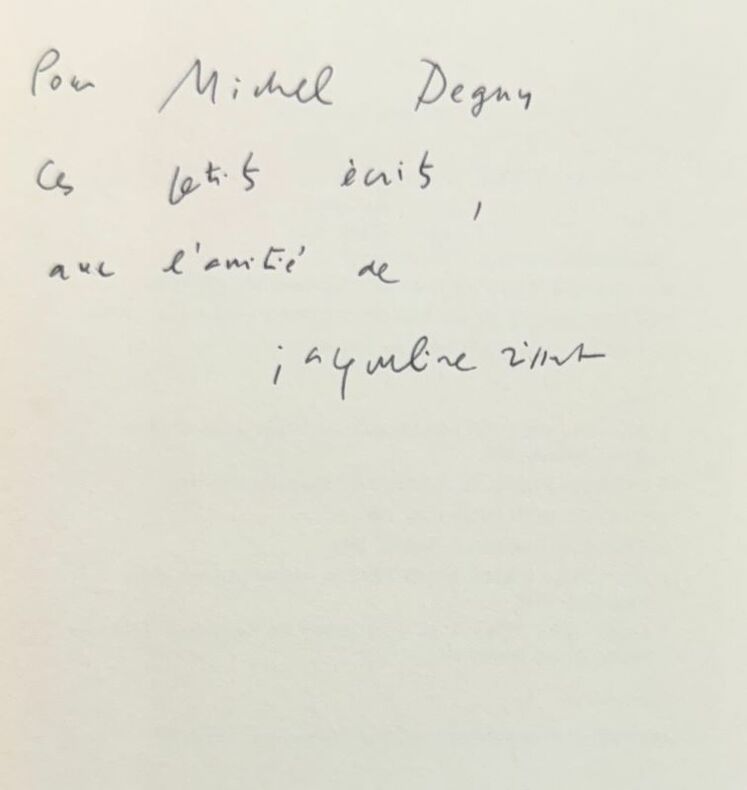 Pour Michel Deguy
ces petits écrits,
avec l'amitié de
jacqueline risset